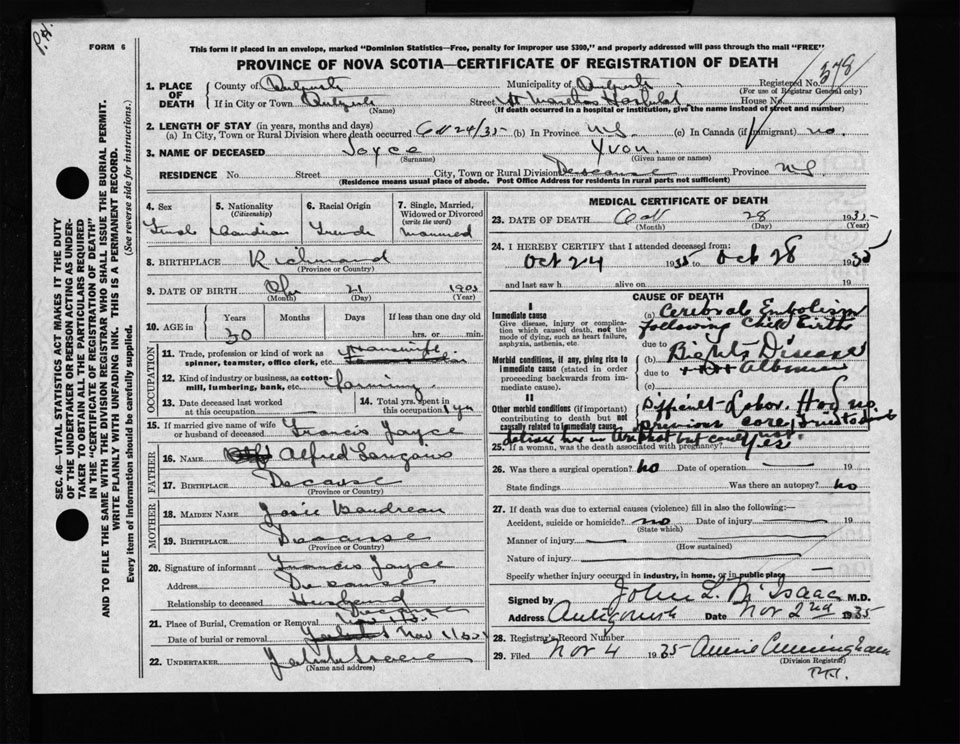 P.H.
FORM 6
This form if placed in an envelope, marked "Dominion Statistics—Free, penalty for improper use $300," and properly addressed will pass through the mail "FREE"
PROVINCE OF NOVA SCOTIA—CERTIFICATE OF REGISTRATION OF DEATH
SEC. 46 VITAL STATISTICS ACT MAKES IT THE DUTY
OF THE UNDERTAKER OR PERSON ACTING AS UNDER-
TAKER TO OBTAIN ALL THE PARTICULARS REQUIRED
IN THE "CERTIFICATE OF REGISTRATION OF DEATH"
AND TO FILE THE SAME WITH THE DIVISION REGISTRAR WHO SHALL ISSUE THE BURIAL PERMIT.
WRITE PLAINLY WITH UNFADING INK. THIS IS A PERMANENT RECORD.
Every item of information should be carefully supplied. (See reverse side for instructions.)
1. PLACE OF DEATH
County of
Municipality of
Registered No. 378
(For use of Registrar General only)
If in City or Town
(Name)
Street St Marthas Hospital House No.
(If death occurred in a hospital or institution, give the name instead of street and number)
2. LENGTH OF STAY (in years, months and days)
(a) In City, Town or Rural Division where death occurred Oct 24/35 (b) In Province N.S. (c) In Canada (if immigrant) no.
3. NAME OF DECEASED Joyce Yvon
(Surname) (Given name or names)
RESIDENCE No. Street City, Town or Rural Division Province N.S.
(Residence means usual place of abode. Post Office Address for residents in rural parts not sufficient)
4. Sex
Female
5. Nationality
(Citizenship)
Canadian
6. Racial Origin
French
7. Single, Married,
Widowed or Divorced
(write the word)
Married
8. BIRTHPLACE Richmond
(Province or Country)
9. DATE OF BIRTH 21 1905
(Month) (Day) (Year)
10. AGE in
Years Months Days If less than one day old
30 hrs. or min.
OCCUPATION
11. Trade, profession or kind of work as
spinner, teamster, office clerk, etc.
12. Kind of industry or business, as cotton
mill, lumbering, bank, etc. farming
13. Date deceased last worked
at this occupation
14. Total yrs. spent in
this occupation
15. If married give name of wife
or husband of deceased Francis Joyce
FATHER
16. NAME Alfred
17. BIRTHPLACE
(Province or Country)
MOTHER
18. MAIDEN NAME Josie Boudreau
19. BIRTHPLACE
(Province or Country)
20. Signature of informant Francis Joyce
Address
Relationship to deceased Husband
21. Place of Burial, Cremation or Removal
Date of burial or removal Nov 1
22. UNDERTAKER
(Name and address)
MEDICAL CERTIFICATE OF DEATH
23. DATE OF DEATH Oct 28 1935
(Month) (Day) (Year)
24. I HEREBY CERTIFY that I attended deceased from:
Oct 24 1935 to Oct 28 1935
and last saw h alive on 19
CAUSE OF DEATH
I
Immediate cause
Give disease, injury or complica-
tion which caused death, not the
mode of dying, such as heart failure,
asphyxia, asthenia, etc.
(a) Cerebral Embolism
following Child Birth
due to
Morbid conditions, if any, giving rise to
immediate cause (stated in order
proceeding backwards from im-
mediate cause).
(b) Brights Disease
due to
(c)
II
Other morbid conditions (if important)
contributing to death but not
causally related to immediate cause.
Difficult Labor. Had no
previous care,
25. If a woman, was the death associated with pregnancy? Yes
26. Was there a surgical operation? No Date of operation 19
State findings Was there an autopsy? No
27. If death was due to external causes (violence) fill in also the following:—
Accident, suicide or homicide? no Date of injury 19
(State which)
Manner of injury
(How sustained)
Nature of injury
Specify whether injury occurred in industry, in home, or in public place
Signed by John L. McIsaac M.D.
Address Antigonish Date Nov 2nd 1935
28. Registrar's Record Number
29. Filed Nov 4 1935 Annie Cunningham
(Division Registrar)